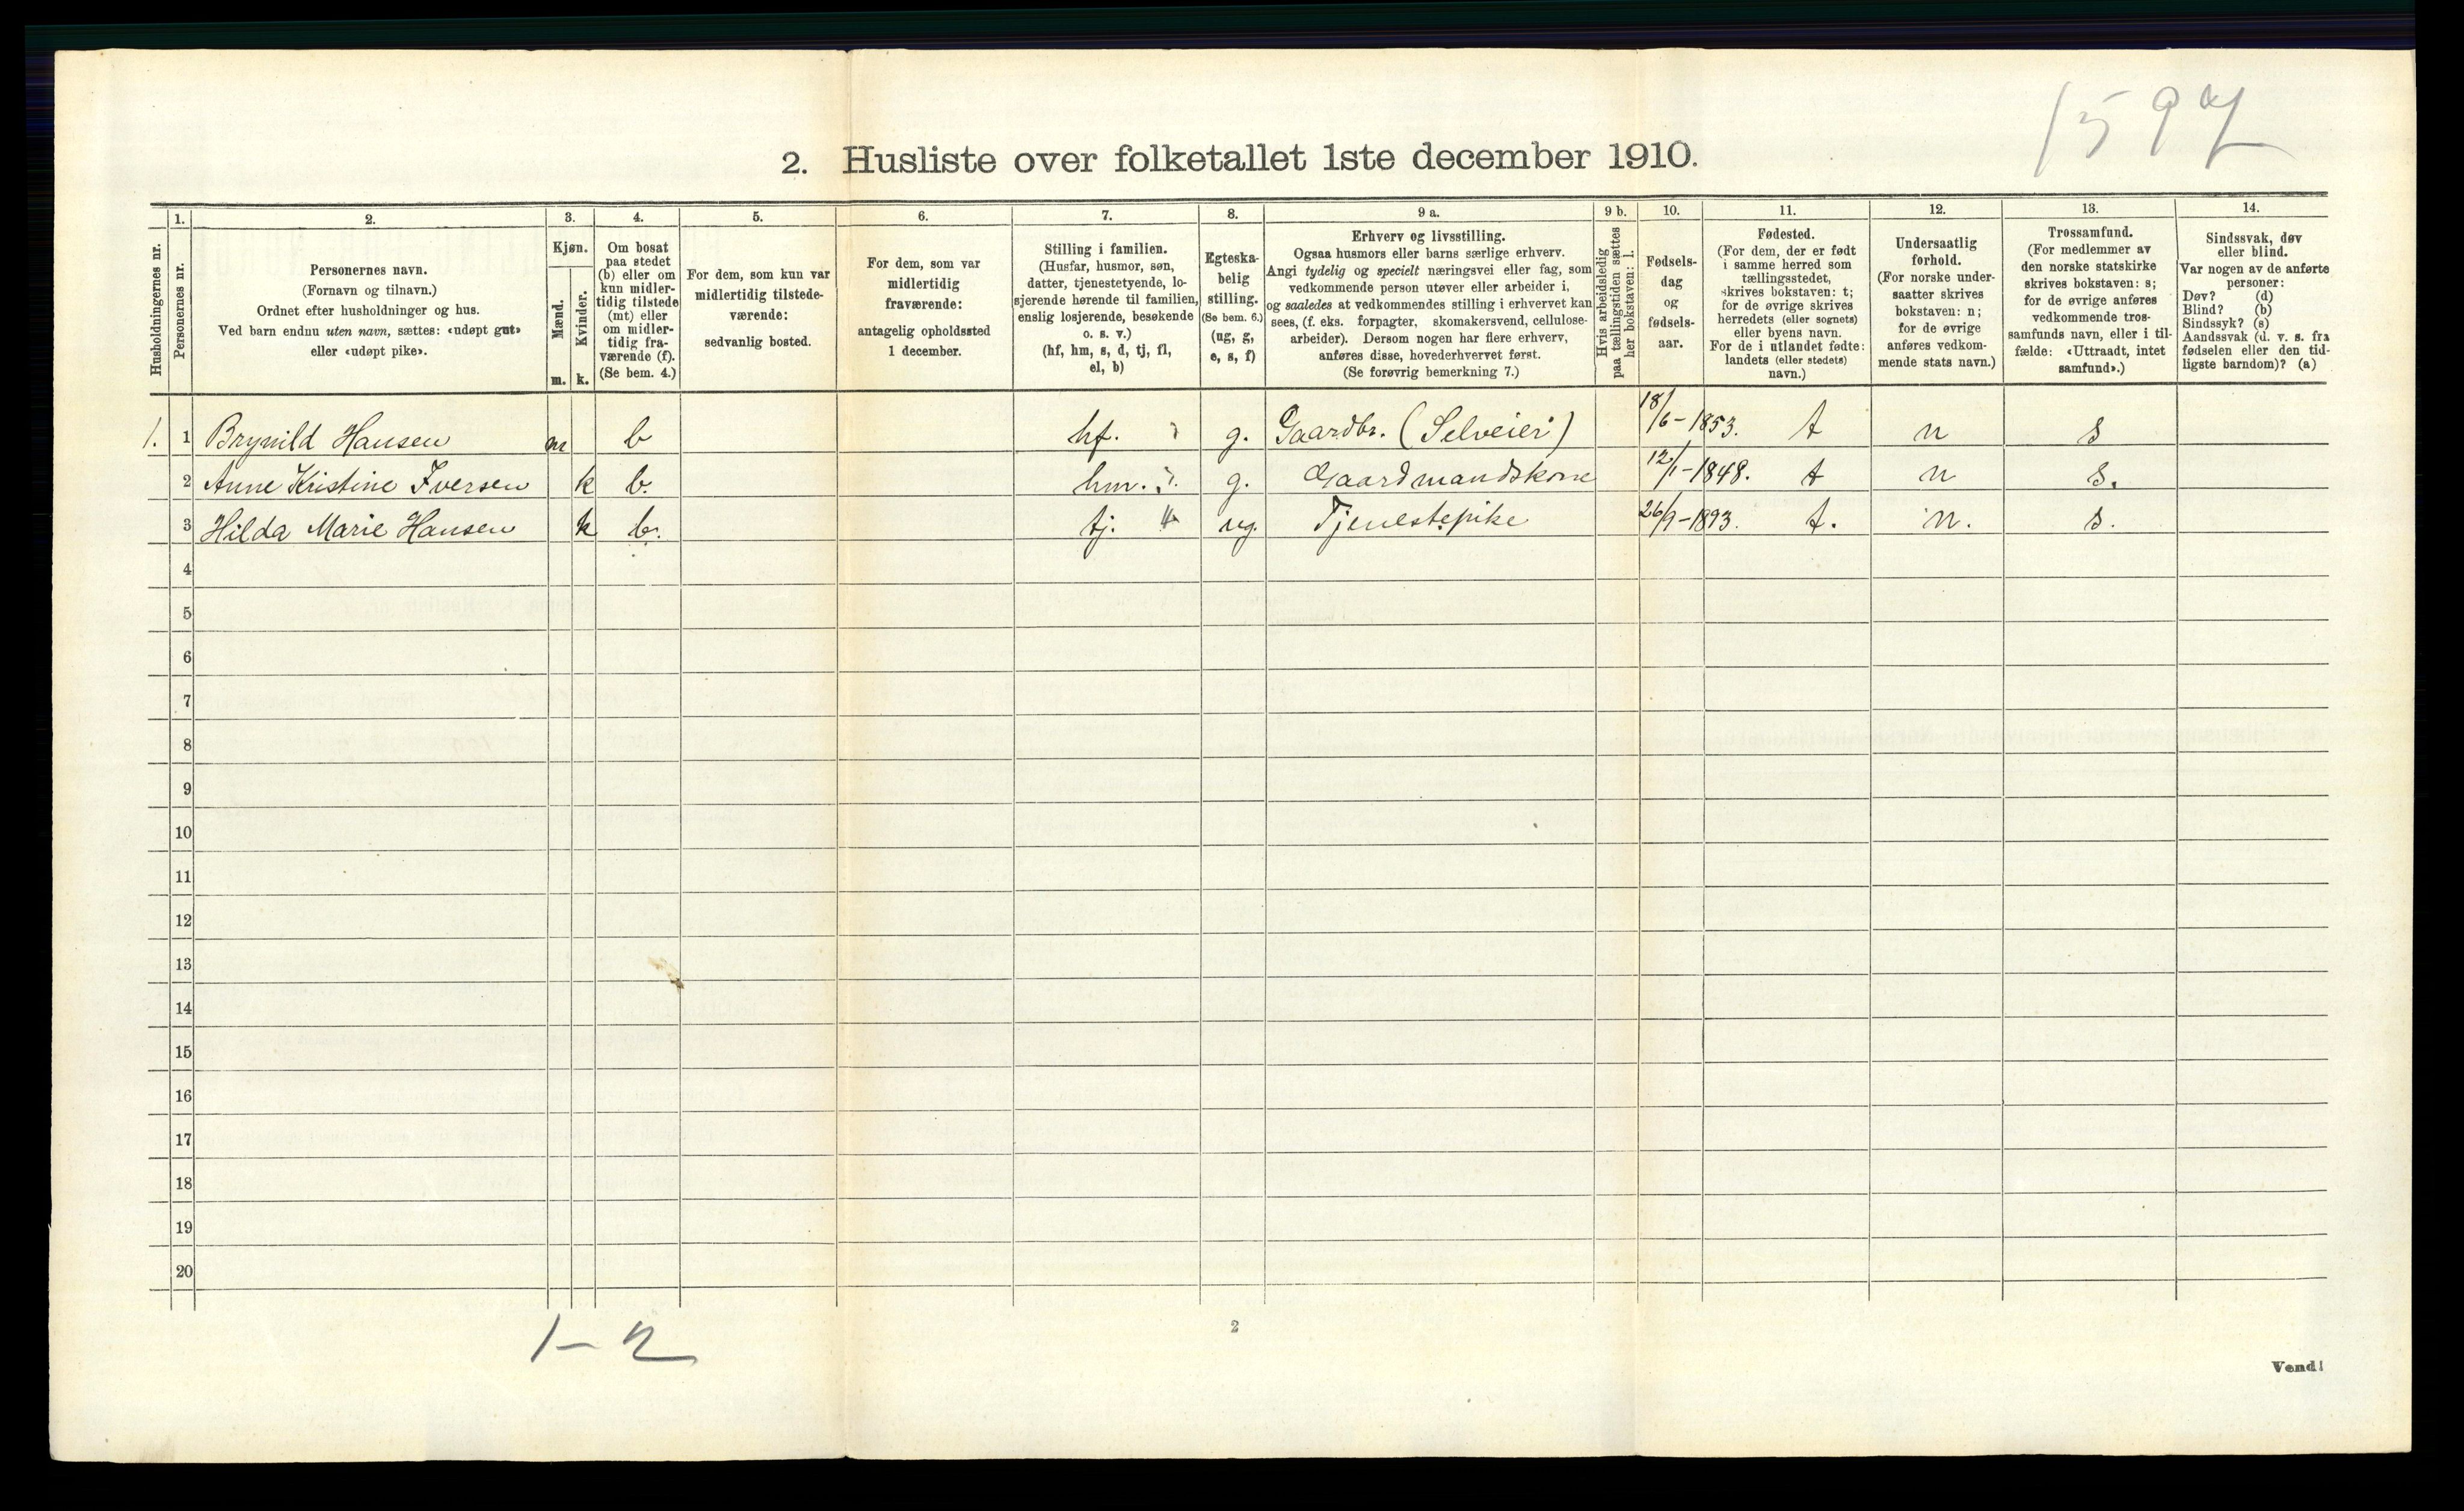 1597
2. Husliste over folketallet 1ste december 1910.
Husholdningernes nr.
1.
Personernes nr.
2.
Personernes navn.
(Fornavn og tilnavn.)
Ordnet efter husholdninger og hus.
Ved barn endnu uten navn, sættes: «udøpt gut»
eller «udøpt pike».
3.
Kjøn.
Mænd.
Kvinder.
m. k.
4.
Om bosat
paa stedet
(b) eller om
kun midler-
tidig tilstede
(mt) eller
om midler-
tidig fra-
værende (f).
(Se bem. 4.)
5.
For dem, som kun var
midlertidig tilstede-
værende:
sedvanlig bosted.
6.
For dem, som var
midlertidig
fraværende:
antagelig opholdssted
1 december.
7.
Stilling i familien.
(Husfar, husmor, søn,
datter, tjenestetyende, lo-
sjerende hørende til familien,
enslig losjerende, besøkende
o. s. v.)
(hf, hm, s, d, tj, fl,
el, b)
8.
Egteska-
belig
stilling.
(Se bem. 6.)
(ug, g,
e, s, f)
9 a.
Erhverv og livsstilling.
Ogsaa husmors eller barns særlige erhverv.
Angi tydelig og specielt næringsvei eller fag, som
vedkommende person utøver eller arbeider i,
og saaledes at vedkommendes stilling i erhvervet kan
sees, (f. eks. forpagter, skomakersvend, cellulose-
arbeider). Dersom nogen har flere erhverv,
anføres disse, hovederhvervet først.
(Se forøvrig bemerkning 7.)
9 b.
Hvis arbeidsledig
paa tællingstiden sættes
her bokstaven: l.
10.
Fødsels-
dag
og
fødsels-
aar.
11.
Fødested.
(For dem, der er født
i samme herred som
tællingsstedet,
skrives bokstaven: t;
for de øvrige skrives
herredets (eller sognets)
eller byens navn.
For de i utlandet fødte:
landets (eller stedets)
navn.)
12.
Undersaatlig
forhold.
(For norske under-
saatter skrives
bokstaven: n;
for de øvrige
anføres vedkom-
mende stats navn.)
13.
Trossamfund.
(For medlemmer av
den norske statskirke
skrives bokstaven: s;
for de øvrige anføres
vedkommende tros-
samfunds navn, eller i til-
fælde: «Uttraadt, intet
samfund».)
14.
Sindssvak, døv
eller blind.
Var nogen av de anførte
personer:
Døv? (d)
Blind? (b)
Sindssyk? (s)
Aandssvak (d. v. s. fra
fødselen eller den tid-
ligste barndom)? (a)
1. 1 Brynild Hansen m b hf. g. Gaardbr. (Selveier) 18/6-1853. t n s
2 Anne Kristine Iversen k b. hm. g. Gaardmandskone 12/1-1848. t n s.
3 Hilda Marie Hansen k b. tj. ug. Tjenestepike 26/9-1893. t. n. s.
4
5
6
7
8
9
10
11
12
13
14
15
16
17
18
19
20
1-2
2
Vend!